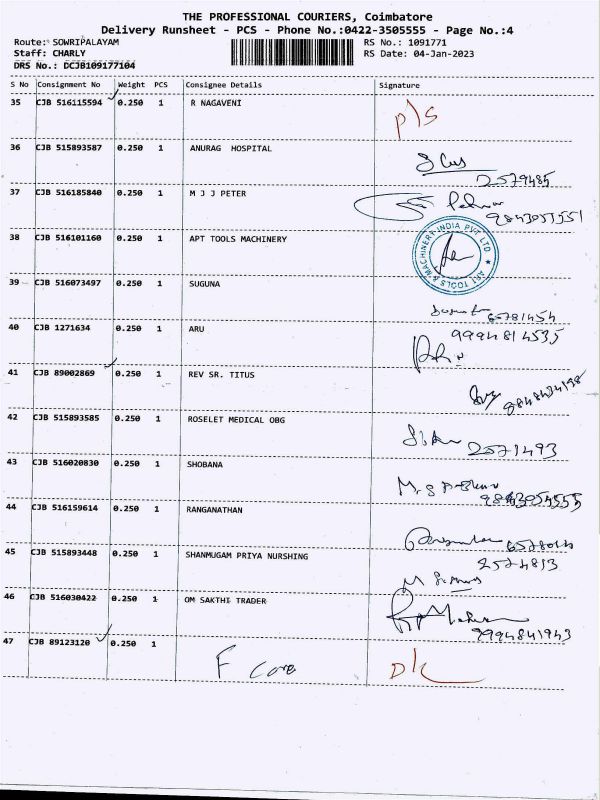 THE PROFESSIONAL COURIERS, Coimbatore
Delivery Runsheet - PCS - Phone No.:0422-3505555 - Page No.:4
Route: SOWRIPALAYAM
RS No.: 1091771
Staff: CHARLY
RS Date: 04-Jan-2023
DRS No.: DCJB109177104
S No Consignment No Weight PCS Consignee Details Signature
35 CJB 516115594 0.250 1 R NAGAVENI
P/S
36 CJB 515893587 0.250 1 ANURAG HOSPITAL
2579485
37 CJB 516185840 0.250 1 M J J PETER
9843055551
38 CJB 516101160 0.250 1 APT TOOLS MACHINERY
APT TOOLS & MACHINERY INDIA PVT LTD ★
39 CJB 516073497 0.250 1 SUGUNA
65781454
40 CJB 1271634 0.250 1 ARU
9994814535
41 CJB 89002869 0.250 1 REV SR. TITUS
42 CJB 515893585 0.250 1 ROSELET MEDICAL OBG
2571493
43 CJB 516020830 0.250 1 SHOBANA
44 CJB 516159614 0.250 1 RANGANATHAN
45 CJB 515893448 0.250 1 SHANMUGAM PRIYA NURSHING
2574813
46 CJB 516030422 0.250 1 OM SAKTHI TRADER
9994841943
47 CJB 89123120 0.250 1
F Core
D/L